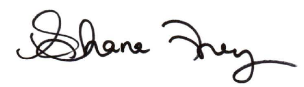 Shane Frey